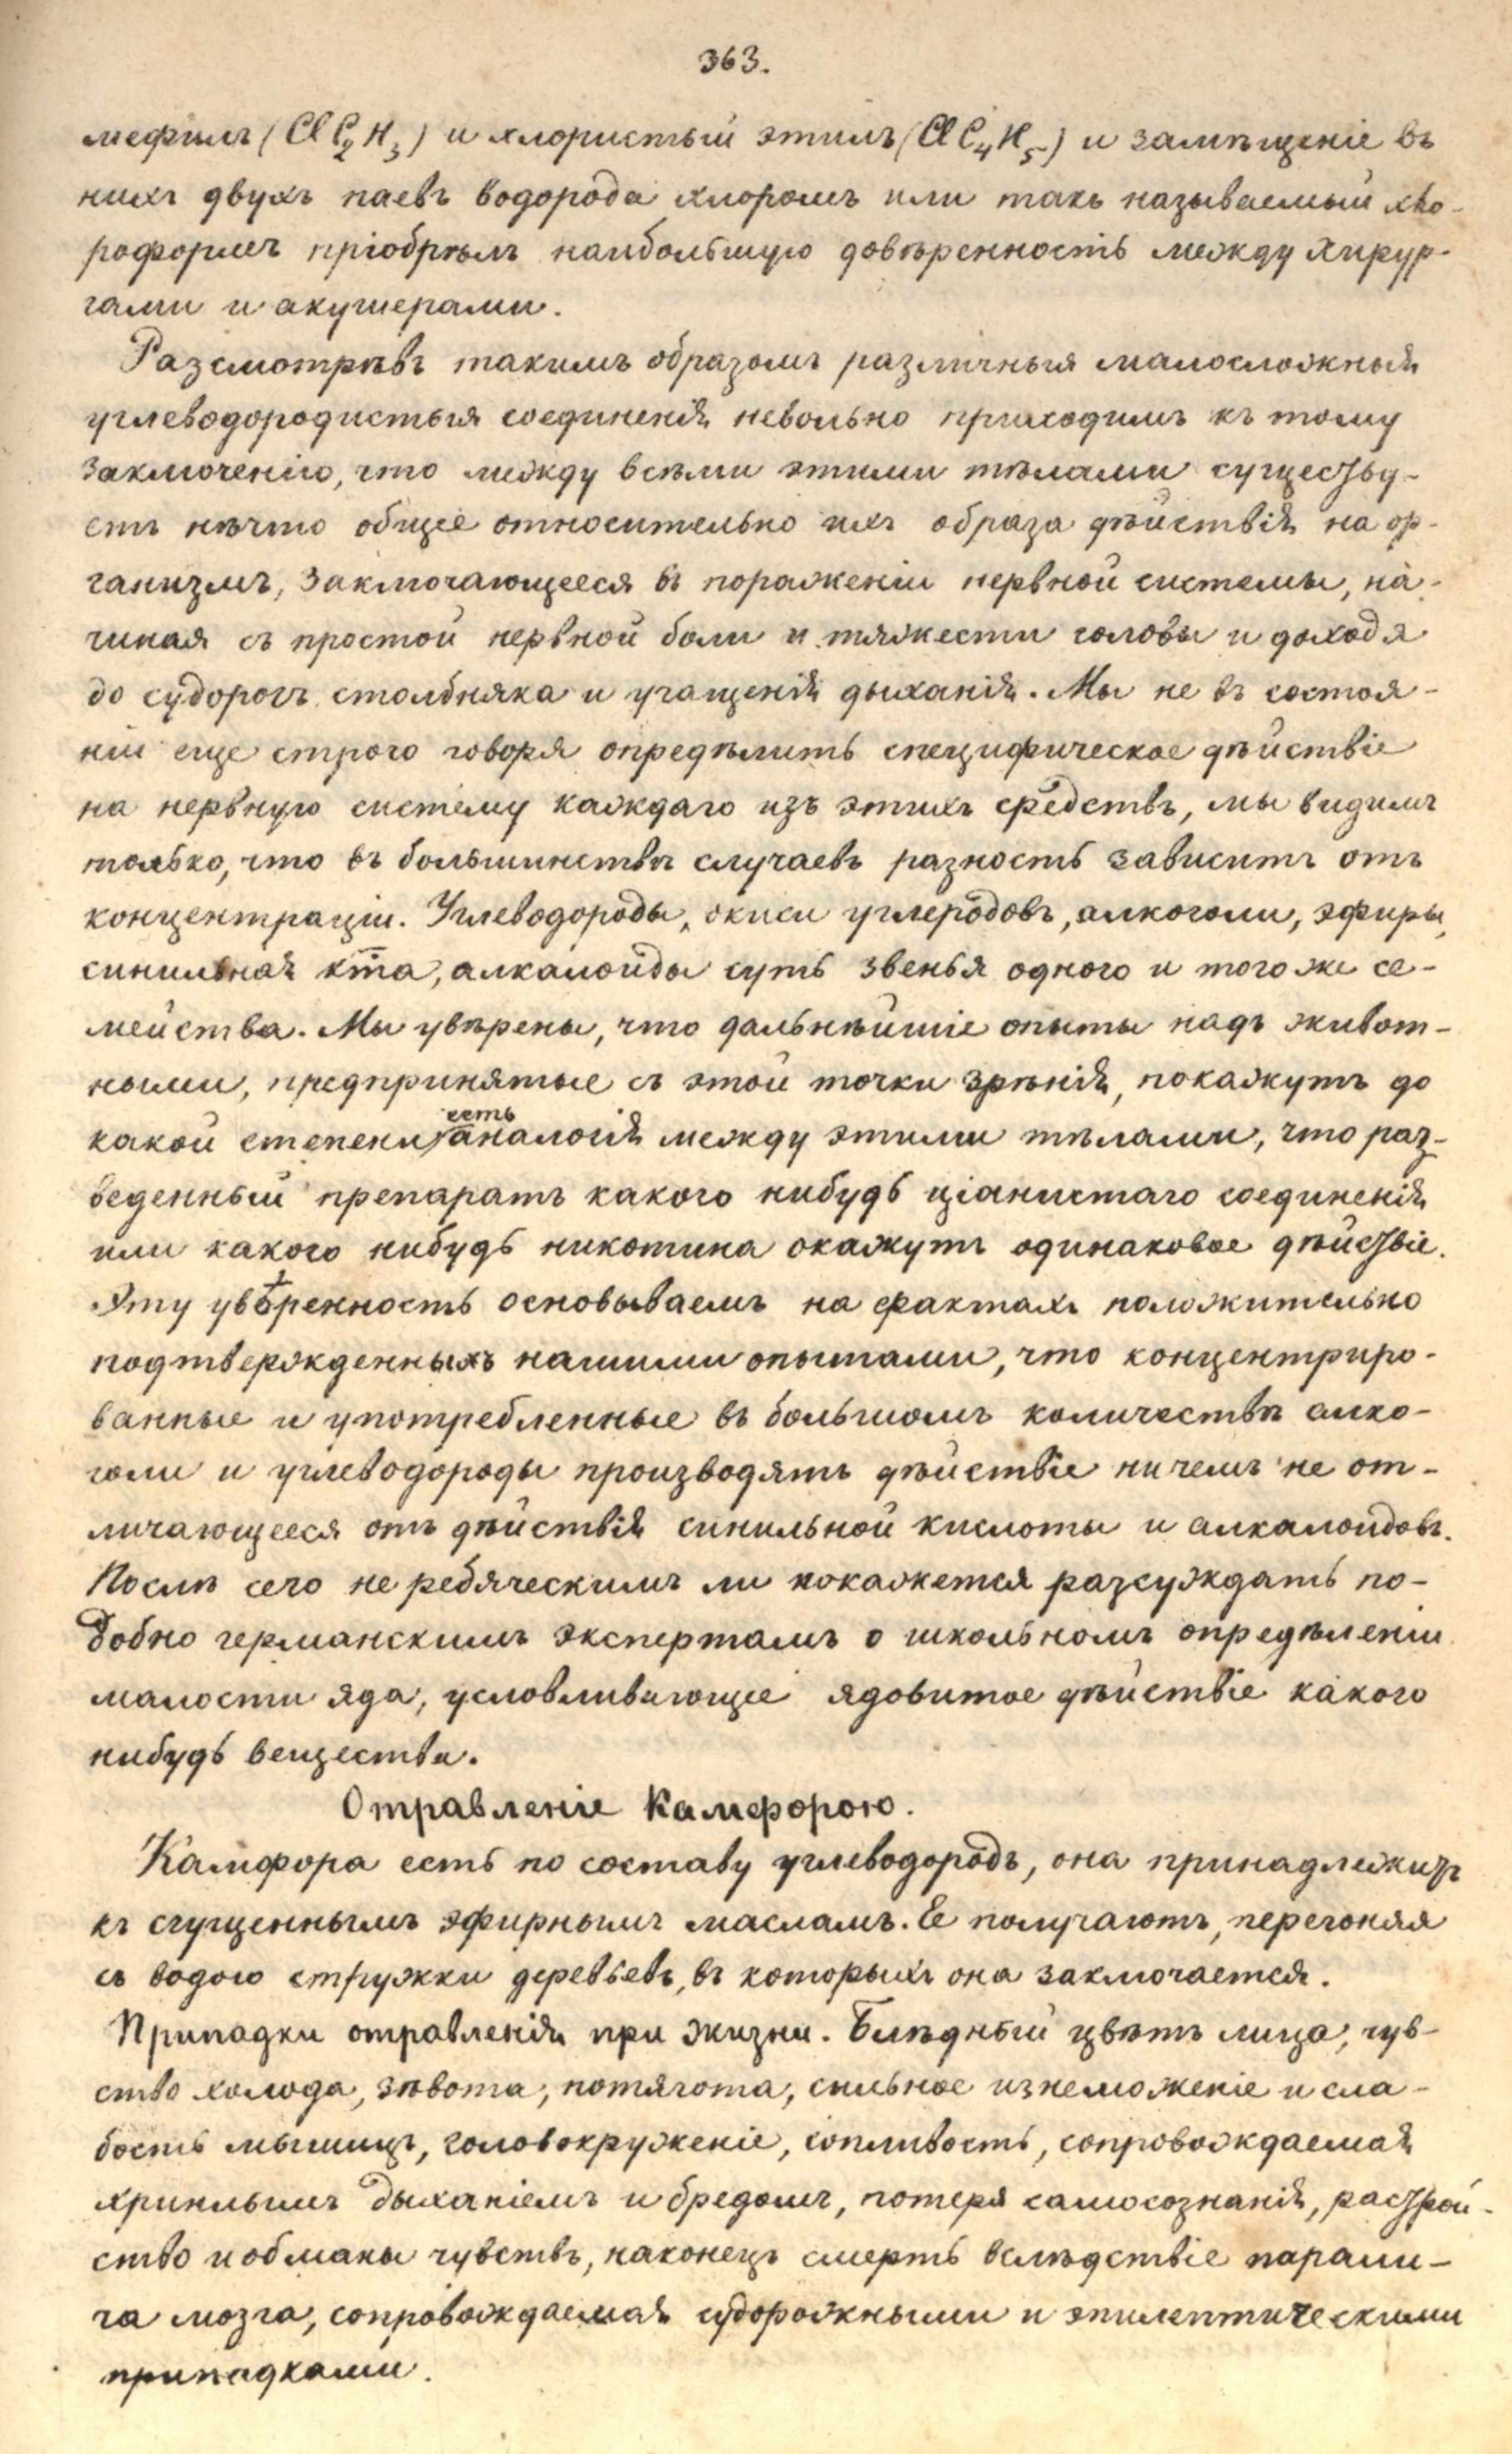 363.
мефилъ (ClC₂H₃) и хлористый этилъ (ClC₄H₅) и замѣщеніе въ
нихъ двухъ паевъ водорода хлоромъ или такъ называемый хло-
роформъ пріобрѣлъ наибольшую довѣренность между хирур-
гами и акушерами.
Разсмотрѣвъ такимъ образомъ различныя малосложныя
углеводородистыя соединенія невольно приходимъ къ тому
заключенію, что между всѣми этими тѣлами существу-
етъ нѣчто общее относительно ихъ образа дѣйствія на ор-
ганизмъ, заключающееся въ пораженіи нервной системы, на-
чиная съ простой нервной боли и тяжести головы и доходя
до судорогъ столбняка и учащенія дыханія. Мы не въ состоя-
ніи еще строго говоря опредѣлить специфическое дѣйствіе
на нервную систему каждаго изъ этихъ средствъ, мы видимъ
только, что въ большинствѣ случаевъ разность зависитъ отъ
концентраціи. Углеводороды, окиси углеродовъ, алкоголи, эфиры,
синильная кта, алкалоиды суть звенья одного и того же се-
мейства. Мы увѣрены, что дальнѣйшіе опыты надъ живот-
ными, предпринятые съ этой точки зрѣнія, покажутъ до
какой степени есть аналогія между этими тѣлами, что раз-
веденный препаратъ какого нибудь ціанистаго соединенія
или какого нибудь никотина окажутъ одинаковое дѣйствіе.
Эту увѣренность основываемъ на фактахъ положительно
подтвержденныхъ нашими опытами, что концентриро-
ванные и употребленные въ большомъ количествѣ алко-
голи и углеводороды производятъ дѣйствіе ничемъ не от-
личающееся отъ дѣйствія синильной кислоты и алкалоидовъ.
Послѣ сего не ребяческимъ ли покажется разсуждать по-
добно германскимъ экспертамъ о школьномъ опредѣленіи
малости яда, условливающіе ядовитое дѣйствіе какого
нибудь вещества.
Отравленіе Камфорою.
Камфора есть по составу углеводородъ, она принадлежитъ
къ сгущеннымъ эфирнымъ масламъ. Ее получаютъ, перегоняя
съ водою стружки деревьевъ, въ которыхъ она заключается.
Припадки отравленія при жизни. Блѣдный цвѣтъ лица, чув-
ство холода, зѣвота, потягота, сильное изнеможеніе и сла-
бость мышицъ, головокруженіе, сопливость, сопровождаемая
хриплымъ дыханіемъ и бредомъ, потеря самосознанія, растрой-
ство и обманы чувствъ, наконецъ смерть вслѣдствіе парали-
ча мозга, сопровождаемая судорожными и эпилептическими
припадками.